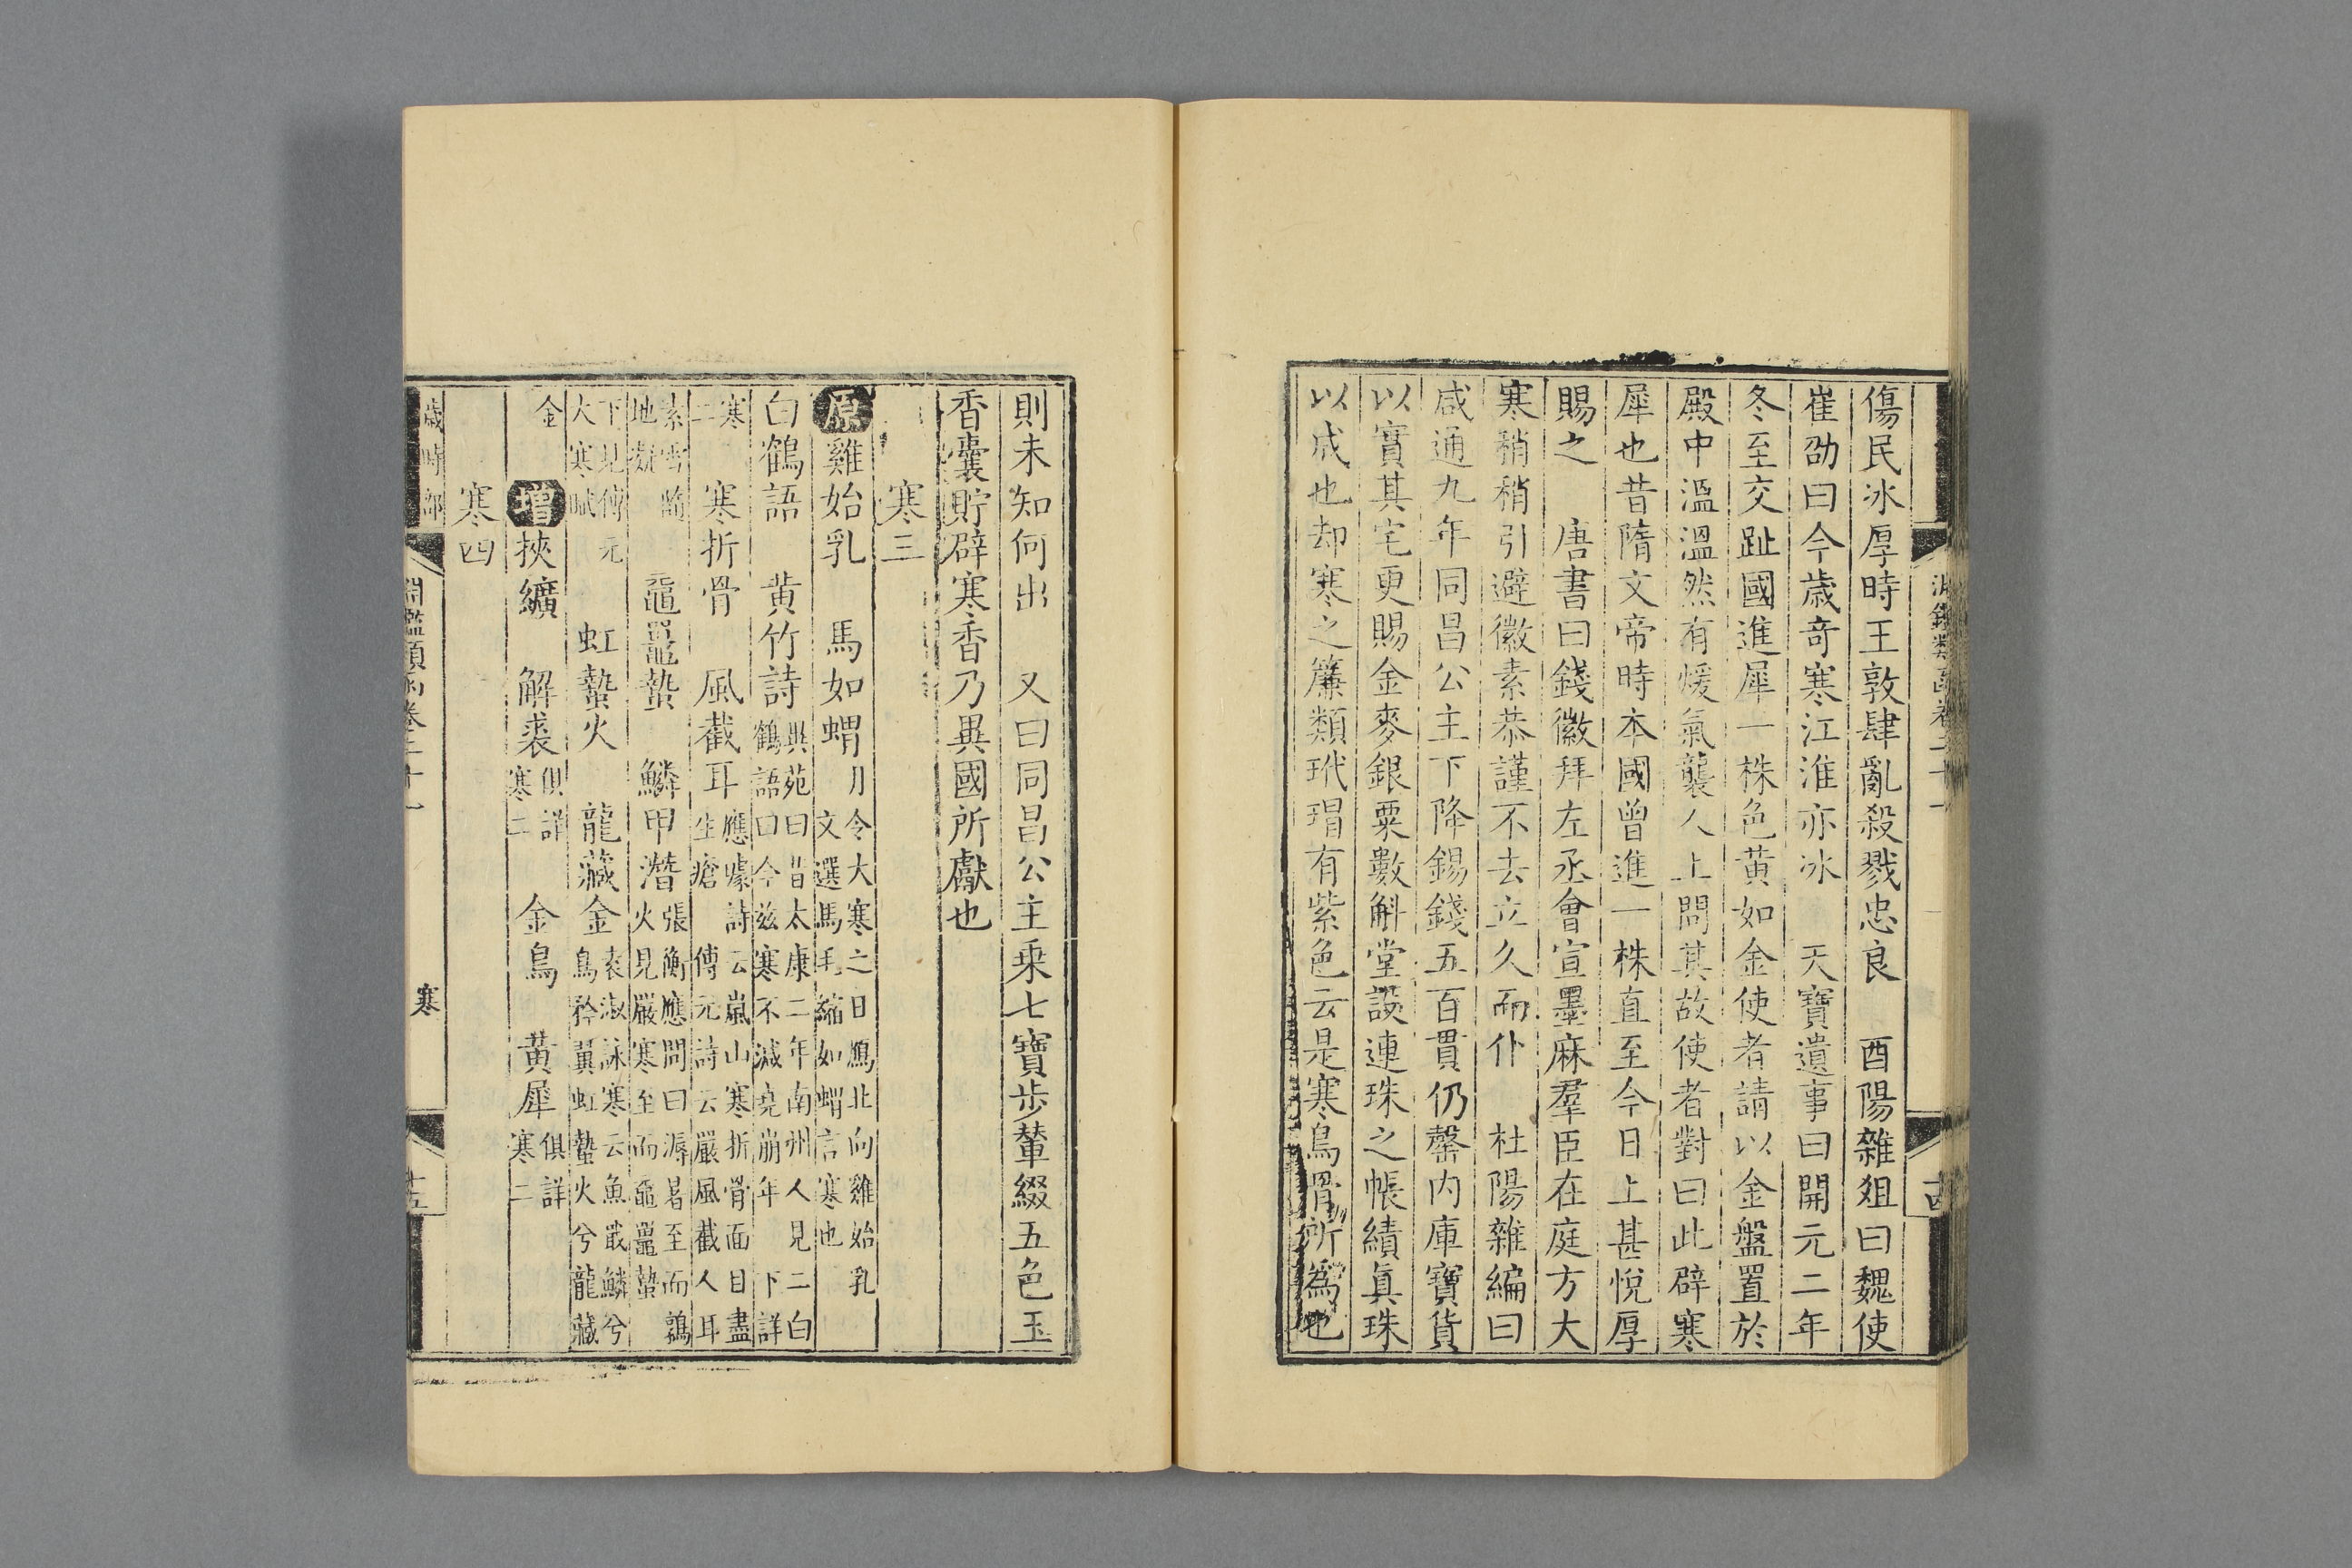 傷民冰厚時王敦肆亂殺戮忠良　酉陽雜俎曰魏使
崔劭曰今歲奇寒江淮亦冰　天寶遺事曰開元二年
冬至交趾國進犀一株色黃如金使者請以金盤置於
殿中溫溫然有煖氣襲人上問其故使者對曰此辟寒
犀也昔隋文帝時本國曾進一株直至今日上甚悅厚
賜之　唐書曰錢徽拜左丞會宣墨麻羣臣在庭方大
寒稍稍引避徽素恭謹不去立久而仆　杜陽雜編曰
咸通九年同昌公主下降錫錢五百貫仍罄內庫寶貨
以實其宅更賜金麥銀粟數斛堂設連珠之帳續真珠
以成也却寒之簾類玳瑁有紫色云是寒鳥骨所為也
則未知何出　又曰同昌公主乘七寶步輦綴五色玉
香囊貯辟寒香乃異國所獻也
寒三
原雞始乳　馬如蝟月令大寒之日鴈北向雞始乳
文選馬毛縮如蝟言寒也
白鶴語　黃竹詩異苑曰昔太康二年南州人見二白
鶴語曰今茲寒不減堯崩年　下詳
寒
二
寒折骨　風截耳應璩詩云嵐山寒折骨面目盡
生瘡　傅元詩云嚴風截人耳
素雪隨
地凝
黿鼉蟄　鱗甲潛張衡應問曰溽暑至而鶉
火見嚴寒至而黿鼉蟄
下見傅元
大寒賦
虹蟄火　龍藏金袁淑詠寒云魚戢鱗兮
鳥矜翼虹蟄火兮龍藏
金
增挾纊　解裘俱詳
寒二
金鳥　黃犀俱詳
寒二
寒四
歲時部
淵鑑類函卷二十一
寒
十五